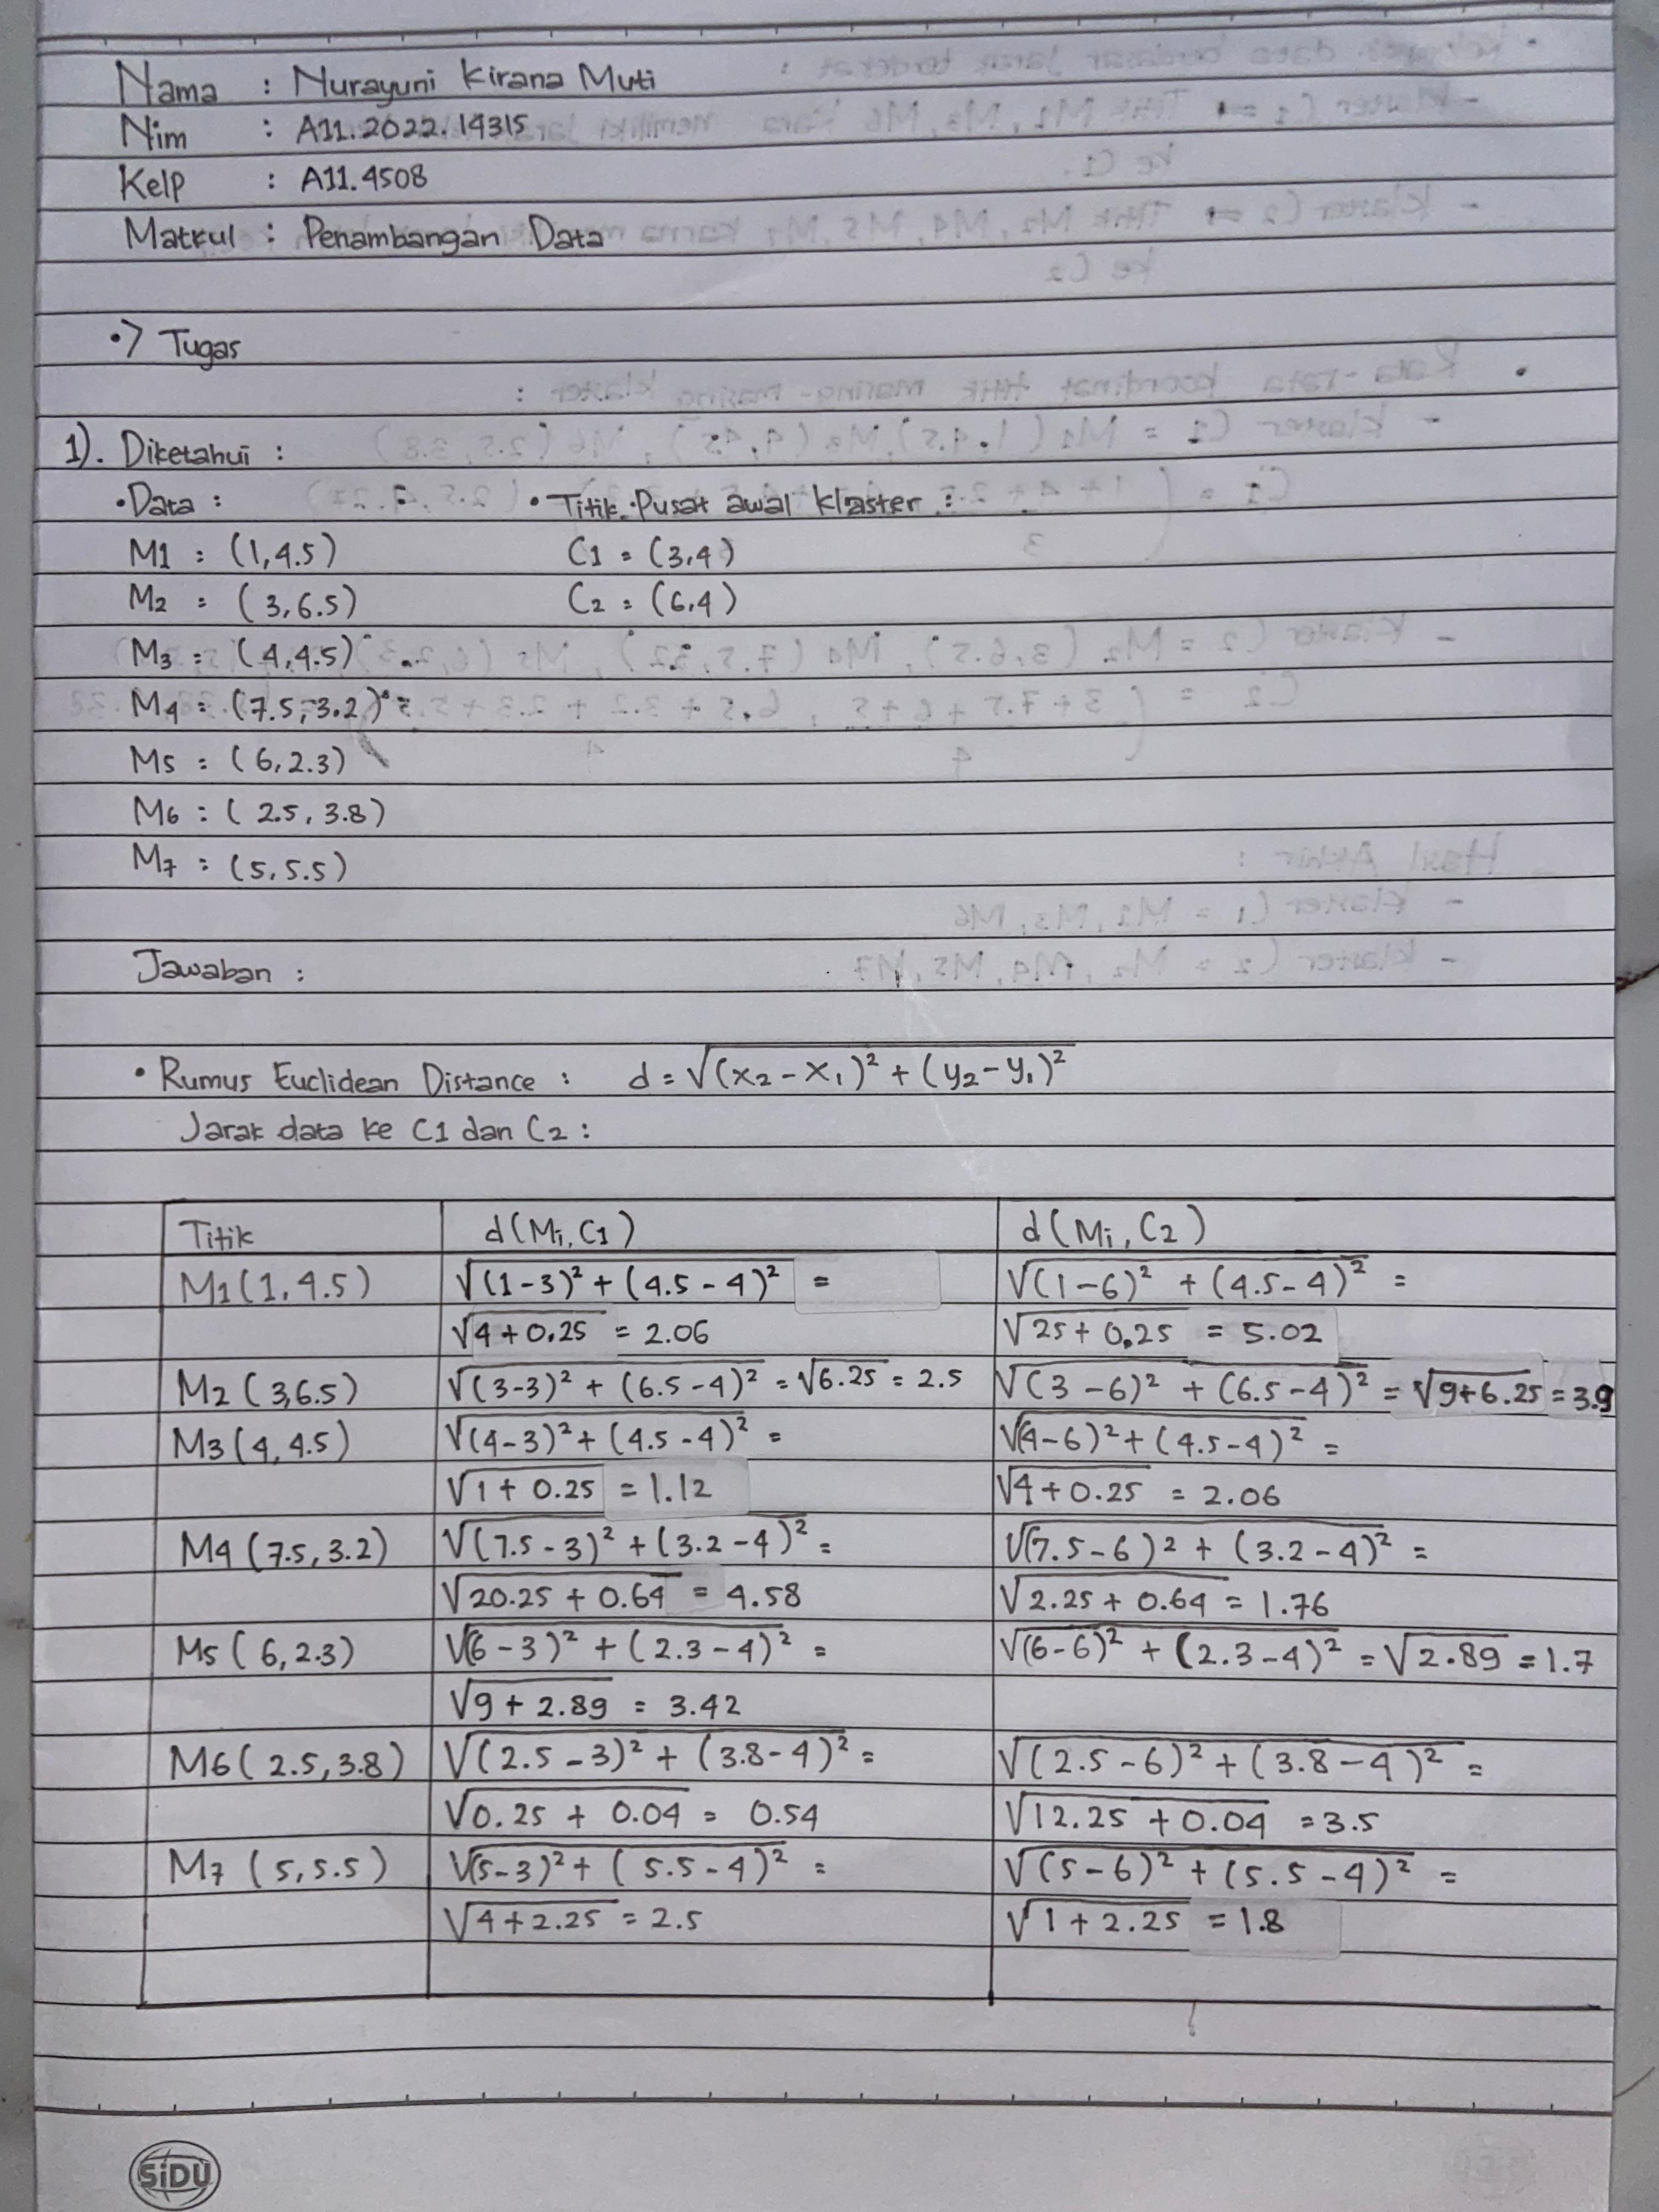 Nama : Nurayuni Kirana Muti
Nim : A11.2022.14315
Kelp : A11.4508
Matkul : Penambangan Data
•> Tugas
1). Diketahui :
• Data : • Titik Pusat awal klaster :
M1 : (1,4.5) C1 = (3,4)
M2 : (3,6.5) C2 = (6,4)
M3 : (4,4.5)
M4 : (7.5, 3.2)
M5 : (6,2.3)
M6 : (2.5, 3.8)
M7 : (5, 5.5)
Jawaban :
• Rumus Euclidean Distance : d = √(x₂ - x₁)² + (y₂ - y₁)²
Jarak data ke C1 dan C2 :
Titik d(Mi, C1) d(Mi, C2)
M1 (1, 4.5) √(1-3)² + (4.5 - 4)² = √(1-6)² + (4.5-4)² =
√4 + 0.25 = 2.06 √25 + 0.25 = 5.02
M2 (3,6.5) √(3-3)² + (6.5-4)² = √6.25 = 2.5 √(3-6)² + (6.5-4)² = √9+6.25 = 3.9
M3 (4, 4.5) √(4-3)² + (4.5-4)² = √(4-6)² + (4.5-4)² =
√1 + 0.25 = 1.12 √4+0.25 = 2.06
M4 (7.5, 3.2) √(7.5-3)² + (3.2-4)² = √(7.5-6)² + (3.2-4)² =
√20.25 + 0.64 = 4.58 √2.25 + 0.64 = 1.76
M5 (6, 2.3) √(6-3)² + (2.3-4)² = √(6-6)² + (2.3-4)² = √2.89 = 1.7
√9 + 2.89 = 3.42
M6 (2.5, 3.8) √(2.5-3)² + (3.8-4)² = √(2.5-6)² + (3.8-4)² =
√0.25 + 0.04 = 0.54 √12.25 + 0.04 = 3.5
M7 (5, 5.5) √(5-3)² + (5.5-4)² = √(5-6)² + (5.5-4)² =
√4+2.25 = 2.5 √1 + 2.25 = 1.8
SiDU